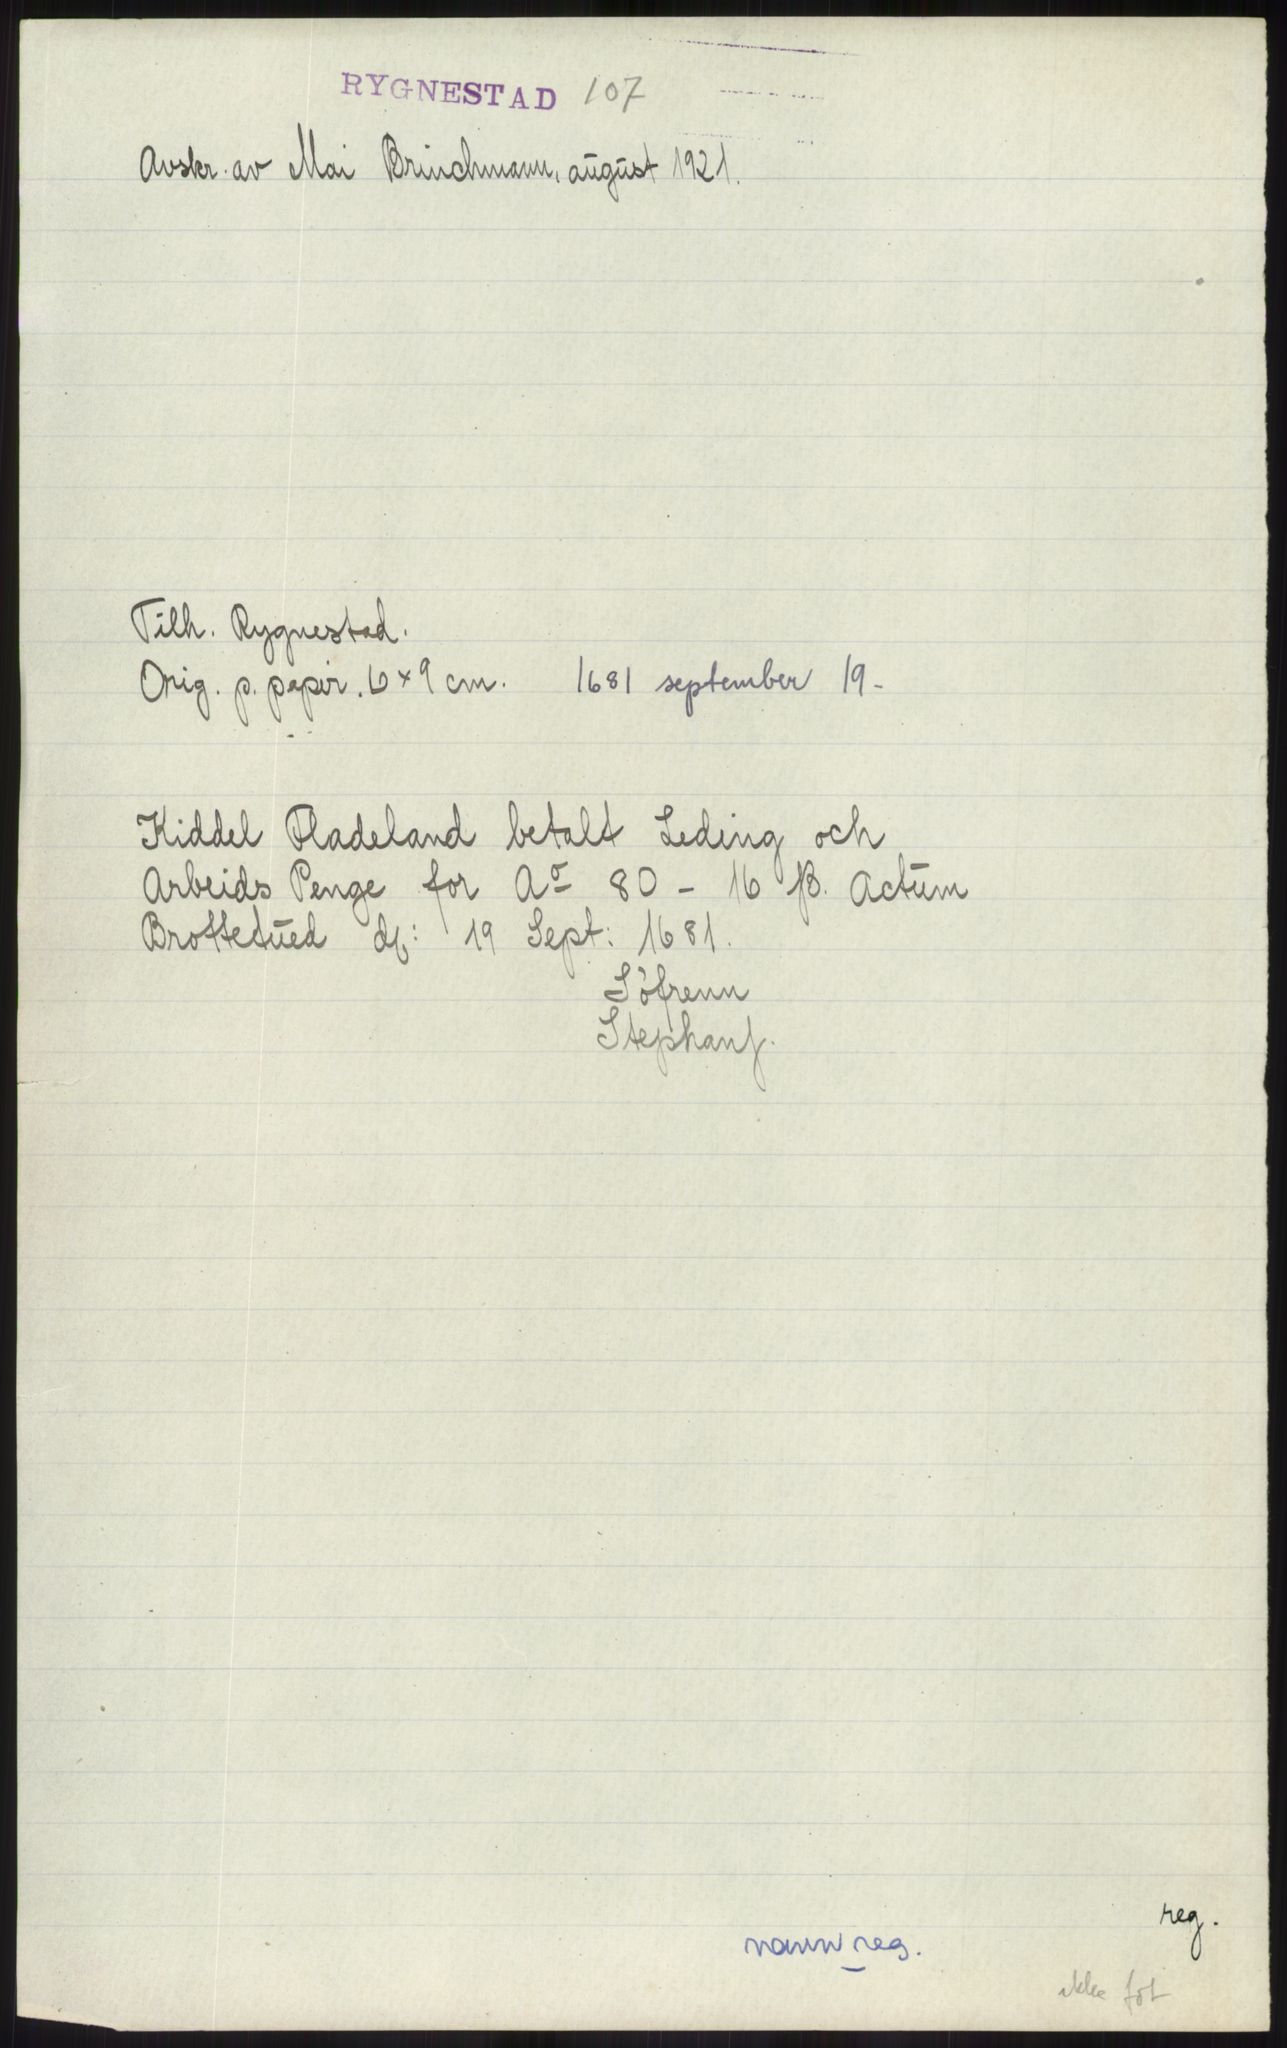 RYGNESTAD 107
Avskr. av Mai Brinchmann, august 1921.
Tilh. Rygnestad.
Orig. p. papir. 6 x 9 cm. 1681 september 19-
Kiddel Fladeland betalt Leding och
Arbeids Penge for Ao 80 - 16 ß. Actum
Brottetued df: 19 Sept: 1681.
Söfrenn
Stephanf.
reg.
navn reg.
ikke fot